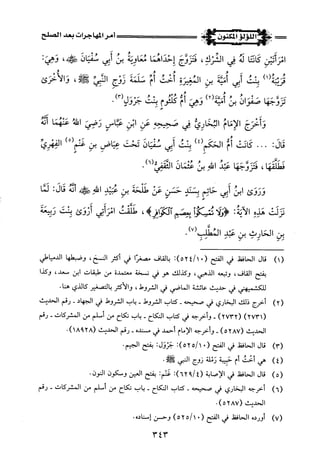 اللؤلؤ المكنون أمر المهاجرات بعد الصلح
امْرَأَتَيْنِ كَانَتَا لَهُ فِي الشِّرْكِ، فَتَزَوَّجَ إِحْدَاهُمَا مُعَاوِيَةُ بنُ أَبِي سُفْيَانَ ﷺ، وَهِيَ:
قُرَيْبَةُ(١) بِنْتُ أَبِي أُمَيَّةَ بنِ المُغِيرَةِ أُخْتُ أُمِّ سَلَمَةَ زَوْجِ النَّبِيِّ ﷺ، وَالأُخْرَى
تَزَوَّجَهَا صَفْوَانُ بنُ أُمَيَّةَ(٢) وَهِيَ أُمُّ كُلْثُومٍ بِنْتُ جَرْوَلٍ(٣).
وَأَخْرَجَ الإِمَامُ البُخَارِيُّ فِي صَحِيحِهِ عَنِ ابْنِ عَبَّاسٍ رَضِيَ اللهُ عَنْهُمَا أَنَّهُ
قَالَ: ... كَانَتْ أُمُّ الحَكَمِ(٤) بِنْتُ أَبِي سُفْيَانَ تَحْتَ عِيَاضِ بنِ غَنْمٍ(٥) الفِهْرِيِّ
فَطَلَّقَهَا، فَتَزَوَّجَهَا عَبْدُ اللهِ بنُ عُثْمَانَ الثَّقَفِيُّ(٦).
وَرَوَى ابنُ أَبِي حَاتِمٍ بِسَنَدٍ حَسَنٍ عَنْ طَلْحَةَ بنِ عُبَيْدِ اللهِ ﷺ أَنَّهُ قَالَ: لَمَّا
نَزَلَتْ هَذِهِ الآيَةُ: ﴿وَلَا تُمْسِكُوا بِعِصَمِ الْكَوَافِرِ﴾، طَلَّقْتُ امْرَأَتِي أَرْوَى بِنْتَ رَبِيعَةَ
بنِ الحَارِثِ بنِ عَبْدِ المُطَّلِبِ(٧).
(١) قال الحافظ في الفتح (٥٢٤/١٠): بالقاف مصغرًا في أكثر النسخ، وضبطها الدمياطي
بفتح القاف، وتبعه الذهبي، وكذلك هو في نسخة معتمدة من طبقات ابن سعد، وكذا
للكشميهني في حديث عائشة الماضي في الشروط، والأكثر بالتصغير كالذي هنا.
(٢) أخرج ذلك البخاري في صحيحه - كتاب الشروط - باب الشروط في الجهاد - رقم الحديث
(٢٧٣١) (٢٧٣٢) - وأخرجه في كتاب النكاح - باب نكاح من أسلم من المشركات - رقم
الحديث (٥٢٨٧) - وأخرجه الإمام أحمد في مسنده - رقم الحديث (١٨٩٢٨).
(٣) قال الحافظ في الفتح (٥٢٥/١٠): جَرْوَل: بفتح الجيم.
(٤) هي أخت أم حبيبة رملة زوج النبي ﷺ.
(٥) قال الحافظ في الإصابة (٦٢٩/٤): غَنْم: بفتح الغين وسكون النون.
(٦) أخرجه البخاري في صحيحه - كتاب النكاح - باب نكاح من أسلم من المشركات - رقم
الحديث (٥٢٨٧).
(٧) أورده الحافظ في الفتح (٥٢٥/١٠) وحسن إسناده.
٣٤٣